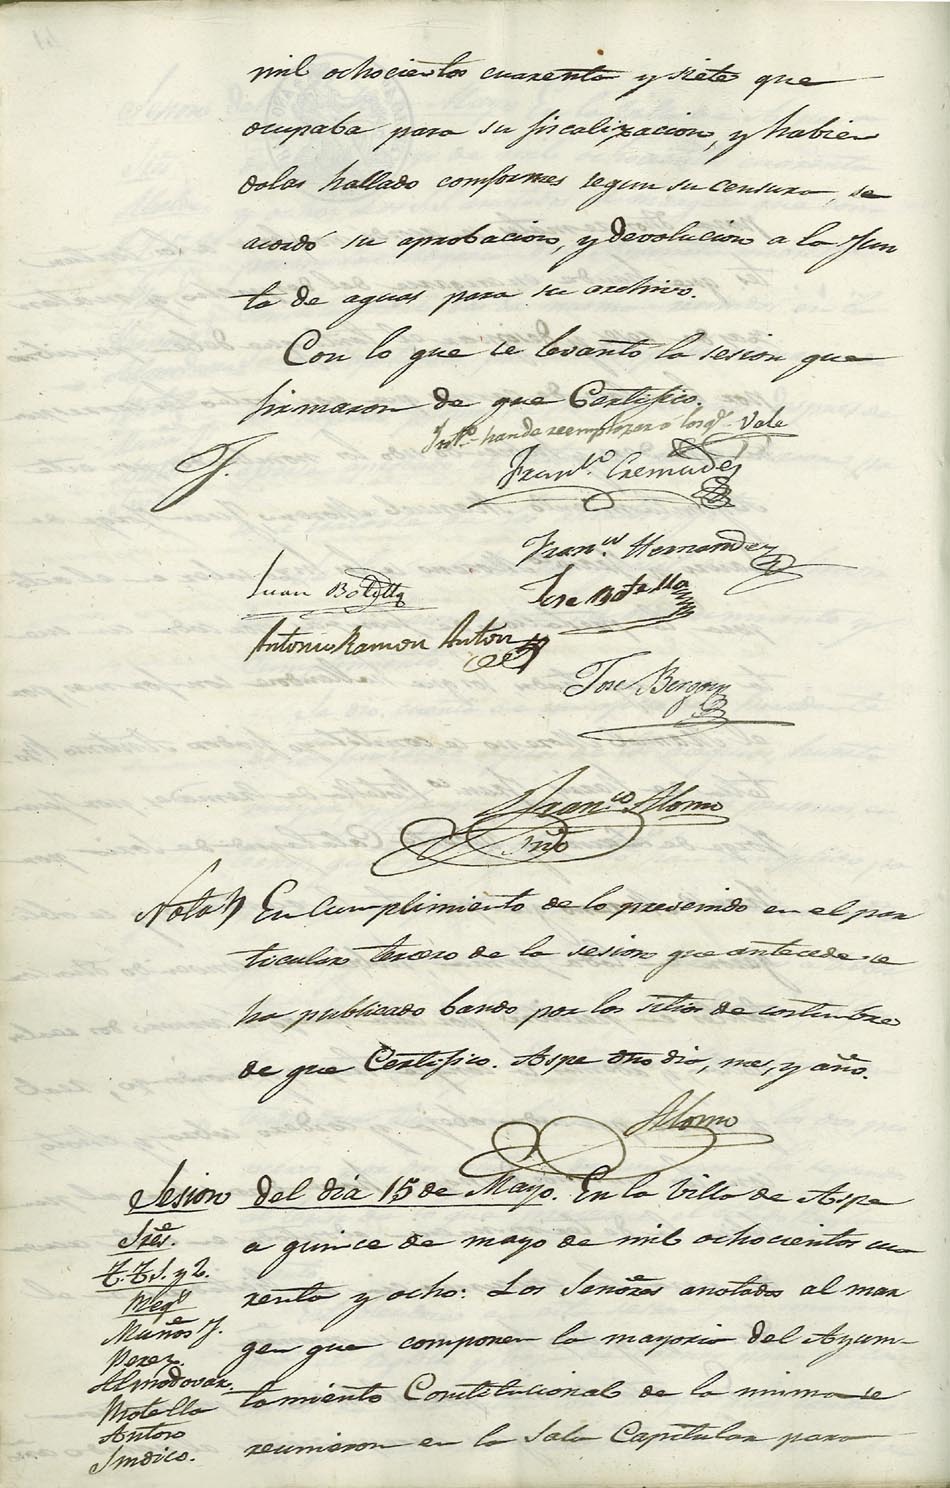 mil ochocientos cuarenta y siete que
ocupaba para su fiscalizacion, y habien
dolas hallado conformes segun su censura, se
acordó su aprobacion, y devolucion a la Jun
ta de aguas para su archivo.
Con lo que se levantó la sesion que
firmaron de que Certifico.
han de reemplazar á los qe. Vale
Franco. Cremades
Franco. Hernandez
Juan Botella
Jose Botella
Antonio Ramon Anton
Jose Berçon
Franco. Alonso
Srio
Nota En Cumplimiento de lo prevenido en el par
ticular tercero de la sesion que antecede se
ha publicado bando por los sitios de costumbre
de que Certifico. Aspe dho dia, mes, y año.
Alonso
Sesion del dia 15 de Mayo. En la Villa de Aspe
Sres.
a quince de mayo de mil ochocientos cua
T. T. 1. y 2.
renta y ocho: Los Señores anotados al mar
Regs
Muños J.
gen que componen la mayoria del Ayun-
Perez.
Almodovar.
tamiento Constitucional de la misma se
Botella
Anton
reunieron en la Sala Capitular para
Sindico.